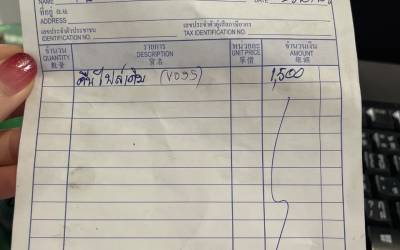 NAME
DATE
ที่อยู่
ADDRESS
เลขประจำตัวประชาชน เลขประจำตัวผู้เสียภาษีอากร
IDENTIFICATION NO. TAX IDENTIFICATION NO.
จำนวน รายการ หน่วยละ จำนวนเงิน
QUANTITY DESCRIPTION UNIT PRICE AMOUNT
數量 貨名 單價 銀碼
คืนไฟล์เดิม (VOSS) 1,500